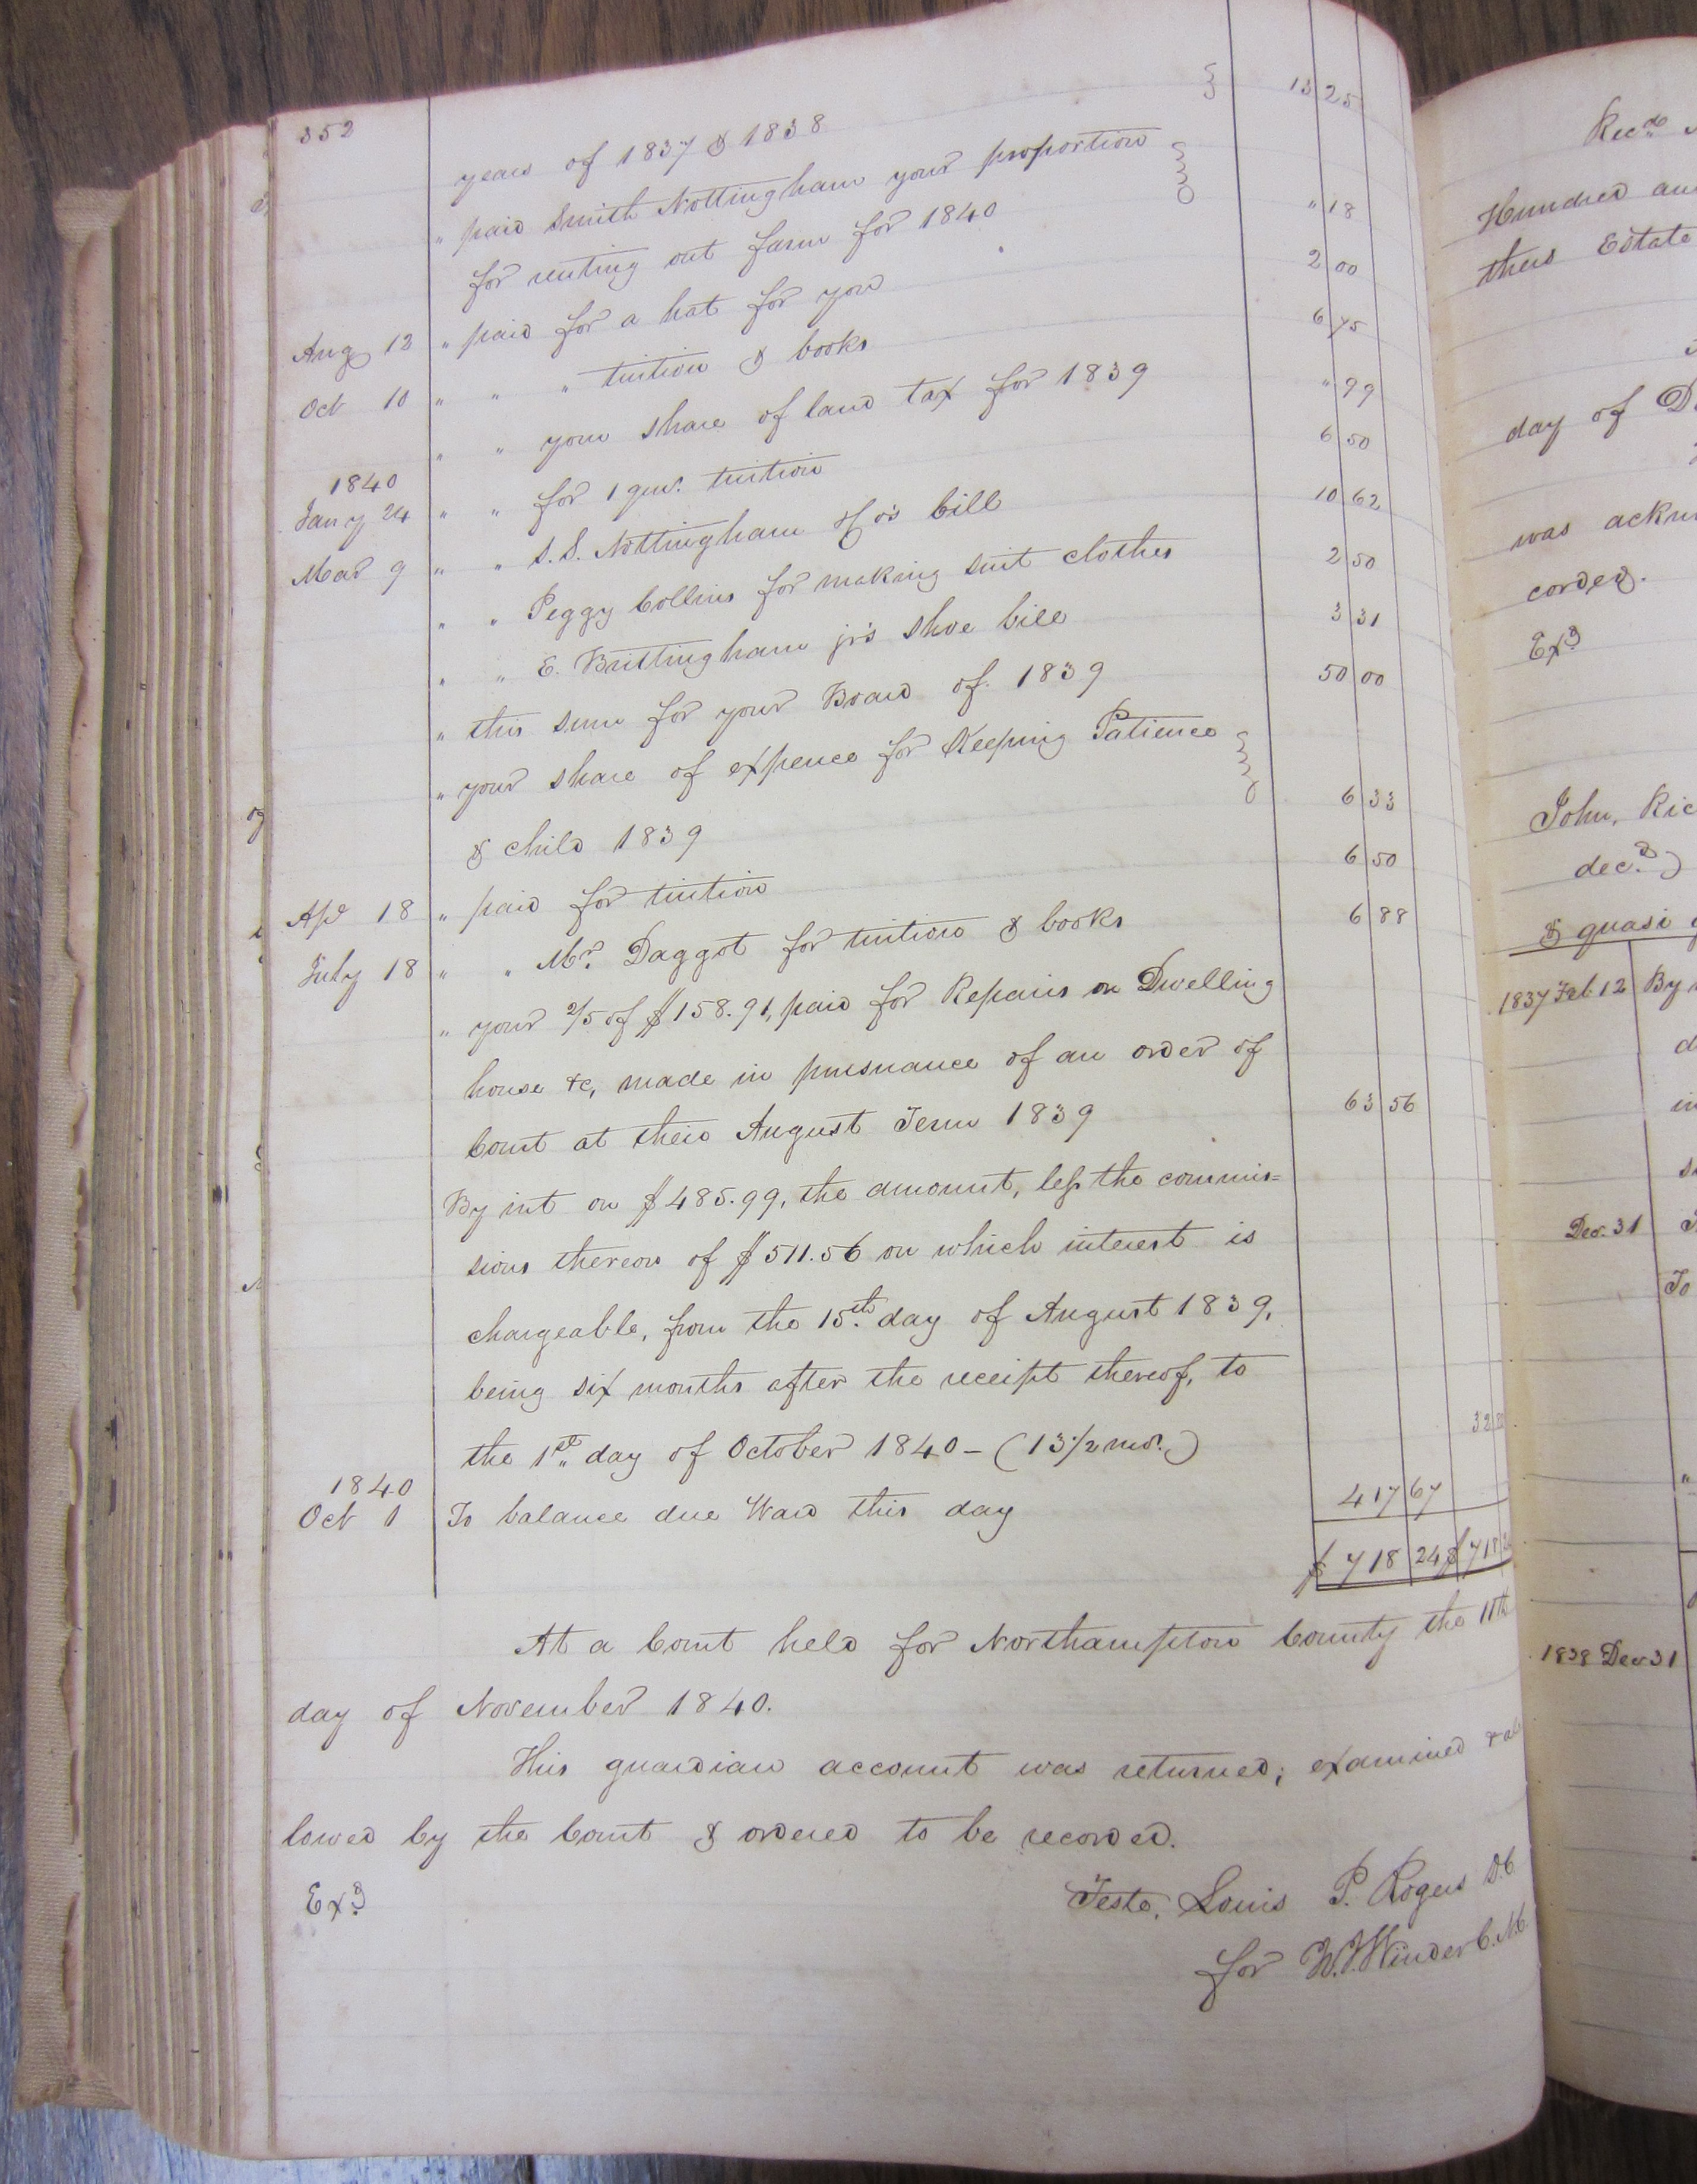 352
years of 1837 & 1838 } 13 25
" paid Smith Nottingham your proportion }
for renting out farm for 1840 " 18
Aug 12 " paid for a hat for you 2 00
Oct 10 " " " tuition & books 6 75
" " your share of land tax for 1839 " 99
1840
Jany 24 " " for 1 qur. tuition 6 50
Mar 9 " " S. S. Nottingham & Co's bill 10 62
" " Peggy Collins for making suit clothes 2 50
" " E. Brittingham jr's shoe bill 3 31
" this sum for your Board of 1839 50 00
" your share of expence for Keeping Patience }
& child 1839 6 33
Ap 18 " paid for tuition 6 50
July 18 " " Mr. Daggot for tuition & books 6 88
" your 2/5 of $158.91, paid for Repairs on Dwelling
house &c, made in pursuance of an order of
Court at their August Term 1839 63 56
By int on $485.99, the amount, less the commis=
sions thereon of $511.56 on which interest is
chargeable, from the 15th day of August 1839,
being six months after the receipt thereof, to
the 1st day of October 1840 - (13 1/2 mos.) 32
1840
Oct 1 To balance due Ward this day 417 67
$ 718 24 $ 718
At a Court held for Northampton County the 11th
day of November 1840.
This guardian account was returned; examined & al
lowed by the Court & ordered to be recorded.
Exd
Teste, Louis P. Rogers D.C.
for W. Winder C.N.C.
Recd
Hundred an
thers Estate
day of D
was ackn
corded.
Exd
John, Ric
decd)
& quasi g
1837 Feb 12 By
Dec. 31
To
1838 Dec 31